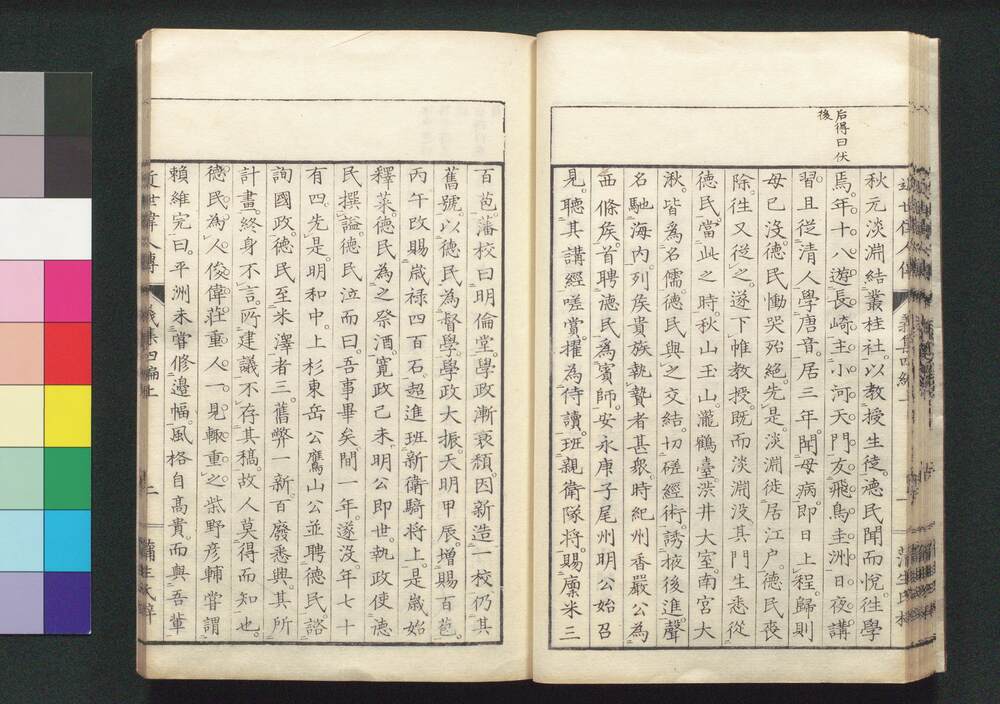 后得曰伏
後
秋元淡淵結叢桂社以教授生徒德民聞而悅徃學
焉年十八遊長崎主小河天門友飛鳥圭洲日夜講
習且從清人學唐音居三年聞母病即日上程歸則
母已沒德民慟哭殆絕先是淡淵徙居江户德民喪
除徃又從之遂下帷教授既而淡淵没其門生悉從
德民當此之時秋山玉山瀧鶴臺渋井大室南宮大
湫皆為名儒德民與之交結切磋經術誘掖後進聲
名馳海内列矦貴族執贄者甚衆時紀州香嚴公為
西條矦首聘德民為賓師安永庚子尾州明公始召
見聽其講經嗟賞擢為侍讀班親衛隊將賜廩米三
百苞藩校曰明倫堂學政漸衰頽因新造一校仍其
舊號以德民為督學學政大振天明甲辰增賜百苞
丙午改賜歲禄四百石超進班新衛騎將上是歲始
釋菜德民為之祭酒寛政己未明公即世執政使德
民撰謚德民泣而曰吾事畢矣間一年遂没年七十
有四先是明和中上杉東岳公鷹山公並聘德民諮
詢國政德民至米澤者三舊弊一新百廢悉興其所
計畫終身不言所建議不存其稿故人莫得而知也
德民為人俊偉莊重人一見輙重之柴野彦輔嘗謂
賴維完曰平洲未嘗修邊幅風格自高貴而與吾輩
近世偉人傳 義集四編上 二 蒲生氏梓